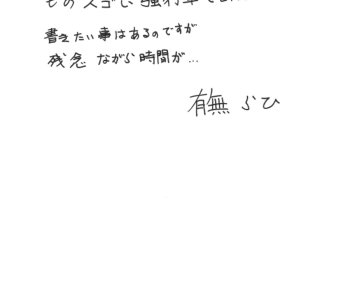 ものスゴい強行軍で
書きたい事はあるのですが
残念ながら時間が…
有無らひ